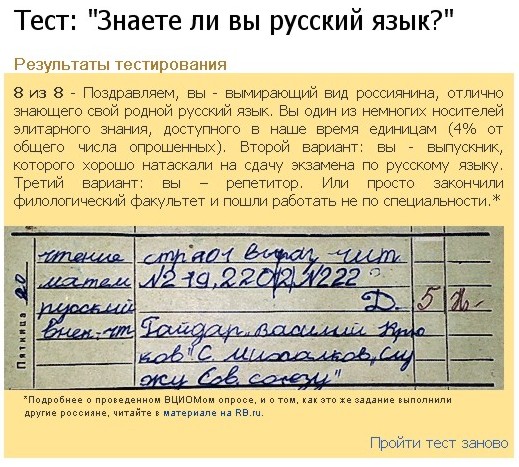 Тест: "Знаете ли вы русский язык?"
Результаты тестирования
8 из 8 - Поздравляем, вы - вымирающий вид россиянина, отлично
знающего свой родной русский язык. Вы один из немногих носителей
элитарного знания, доступного в наше время единицам (4% от
общего числа опрошенных). Второй вариант: вы - выпускник,
которого хорошо натаскали на сдачу экзамена по русскому языку.
Третий вариант: вы – репетитор. Или просто закончили
филологический факультет и пошли работать не по специальности.*
Пятница 20
чтение стр 201 выраз чит.
матем №219, 220(2), №222
русский Д. 5
внек. чт Гайдар, Василий Крю
ков" С. Михалков, Слу
жу Сов. союзу"
*Подробнее о проведенном ВЦИОМом опросе, и о том, как это же задание выполнили
другие россияне, читайте в материале на RB.ru.
Пройти тест заново